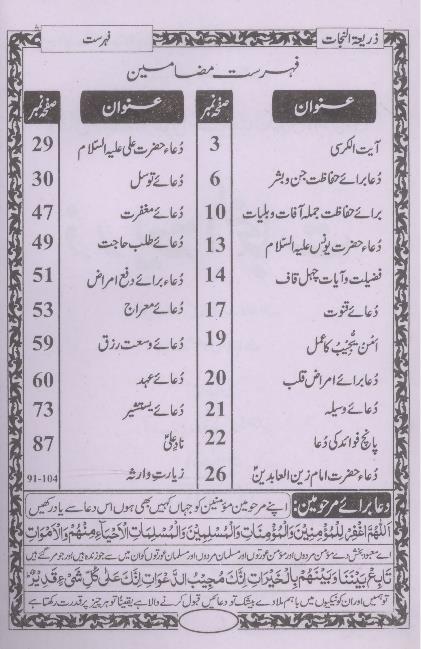 ذریعۃ النجات
فہرست
فہرست مضامین
عنوان صفحہ نمبر
آیت الکرسی 3
دعا برائے حفاظت جن و بشر 6
برائے حفاظت جملہ آفات و بلیات 10
دُعاء حضرت یونس علیہ السّلام 13
فضیلت و آیات چہل قاف 14
دُعائے قنوت 17
امّن یُّجیب کا عمل 19
دُعا برائے امراض قلب 20
دُعائے وسیلہ 21
پانچ فوائد کی دُعا 22
دُعاء حضرت امام زین العابدینؑ 26
عنوان صفحہ نمبر
دُعاء حضرت علی علیہ السّلام 29
دُعائے توسل 30
دُعائے مغفرت 47
دُعائے طلب حاجت 49
دُعاء برائے دفع امراض 51
دُعائے معراج 53
دُعائے وسعت رزق 59
دُعائے عہد 60
دُعائے یستشیر 73
نادِ علیؑ 87
زیارتِ وارثہ 91-104
دعا برائے مرحومین: اپنے مرحومین مؤمنین کو جہاں کہیں بھی ہوں اس دعا سے یاد رکھیں
اَللّٰهُمَّ اغْفِرْ لِلْمُؤْمِنِيْنَ وَالْمُؤْمِنَاتِ وَالْمُسْلِمِيْنَ وَالْمُسْلِمَاتِ الْاَحْيَآءِ مِنْهُمْ وَالْاَمْوَاتِ
اے معبود بخش دے مؤمن مردوں اور مؤمن عورتوں اور مسلمان مردوں اور مسلمان عورتوں کو ان میں سے جو زندہ ہیں اور جو مر گئے ہیں
تَابِعْ بَيْنَنَا وَبَيْنَهُمْ بِالْخَيْرَاتِ اِنَّكَ مُجِيْبُ الدَّعَوَاتِ اِنَّكَ عَلٰى كُلِّ شَيْءٍ قَدِيْرٌ
تو ہمیں اور ان کو نیکیوں میں باہم ملا دے بیشک تو دعائیں قبول کرنے والا ہے یقیناً تو ہر چیز پر قدرت رکھتا ہے